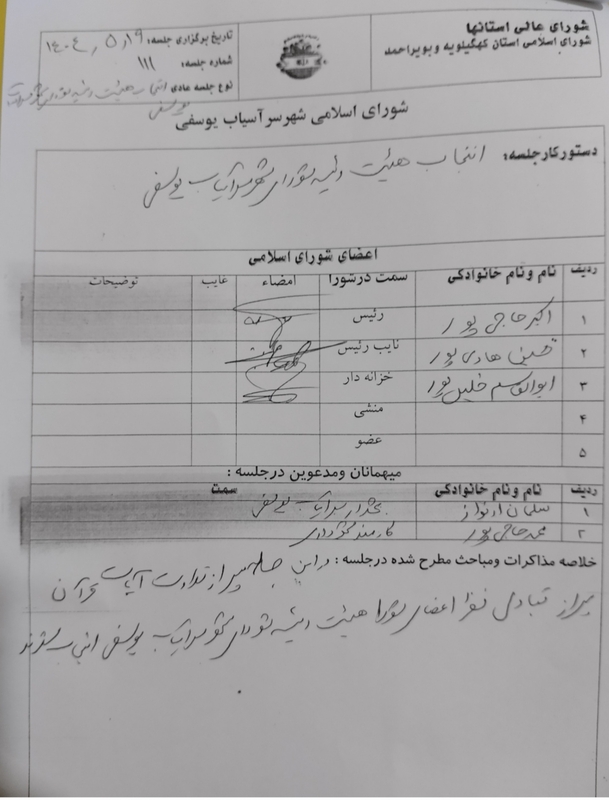 شورای عالی استانها
شورای اسلامی استان کهگیلویه و بویراحمد
تاریخ برگزاری جلسه: ۱۴۰۴/۵/۱۹
شماره جلسه: ۱۱۱
نوع جلسه عادی انتخاب هیئت رئیسه شورای شهر سرآسیاب
یوسفی
شورای اسلامی شهر سرآسیاب یوسفی
دستور کار جلسه: انتخاب هیئت رئیسه شورای شهر سرآسیاب یوسفی
اعضای شورای اسلامی
ردیف نام و نام خانوادگی سمت در شورا امضاء غایب توضیحات
۱ اکبر حاجی پور رئیس
۲ هادی پور نایب رئیس
۳ ابوالقاسم خلیل پور خزانه دار
۴ منشی
۵ عضو
میهمانان ومدعوین درجلسه :
ردیف نام و نام خانوادگی سمت
۱ سلمان بخشدار سرآسیاب یوسفی
۲ محمد حاجی پور کارمند
خلاصه مذاکرات ومباحث مطرح شده درجلسه : در این جلسه پس از تلاوت آیات قرآن
پس از تبادل نظر اعضای شورا هیئت رئیسه شورای شهر سرآسیاب یوسفی انتخاب شدند